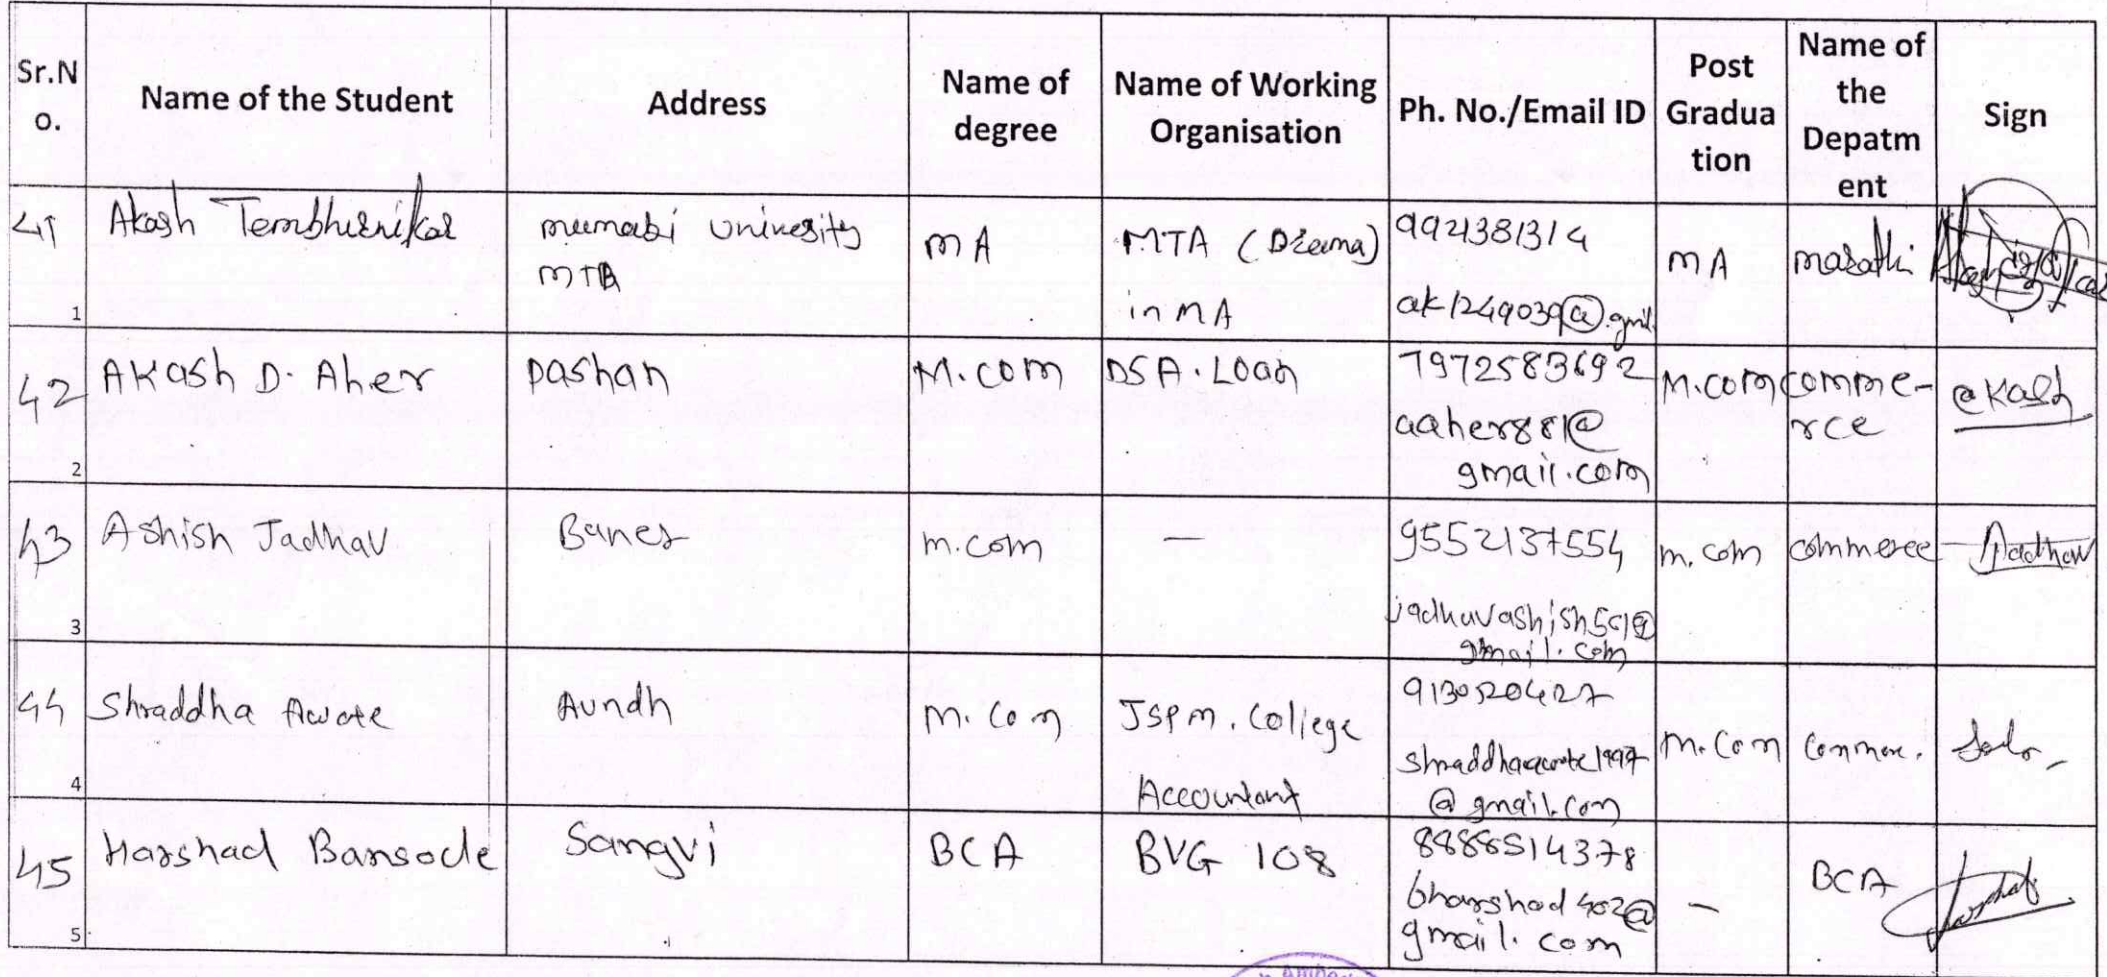 Sr.N
o.
Name of the Student
Address
Name of
degree
Name of Working
Organisation
Ph. No./Email ID
Post
Gradua
tion
Name of
the
Depatm
ent
Sign
41
1
Akash Tembhurnikar
mumabi univesity
MTA
MA
MTA (Drama)
in MA
9921381314
ak1249039@.gmil
MA
marathi
42
2
Akash D. Aher
pashan
M.com
DSA. Loan
7972583692
aaher881@
gmail.com
M.com
comme-
rce
@kash
43
3
Ashish Jadhav
Baner
m.com
—
9552137554
jadhavashish591@
gmail.com
m.com
commerce
Aadhav
44
4
Shraddha Awate
Aundh
M. Com
JSPM. College
Accountant
9130520427
shraddhaawate1997
@gmail.com
M. Com
Commer.
45
5
Harshad Bansode
Sangvi
BCA
BVG 108
8888514378
bharshad402@
gmail. com
—
BCA